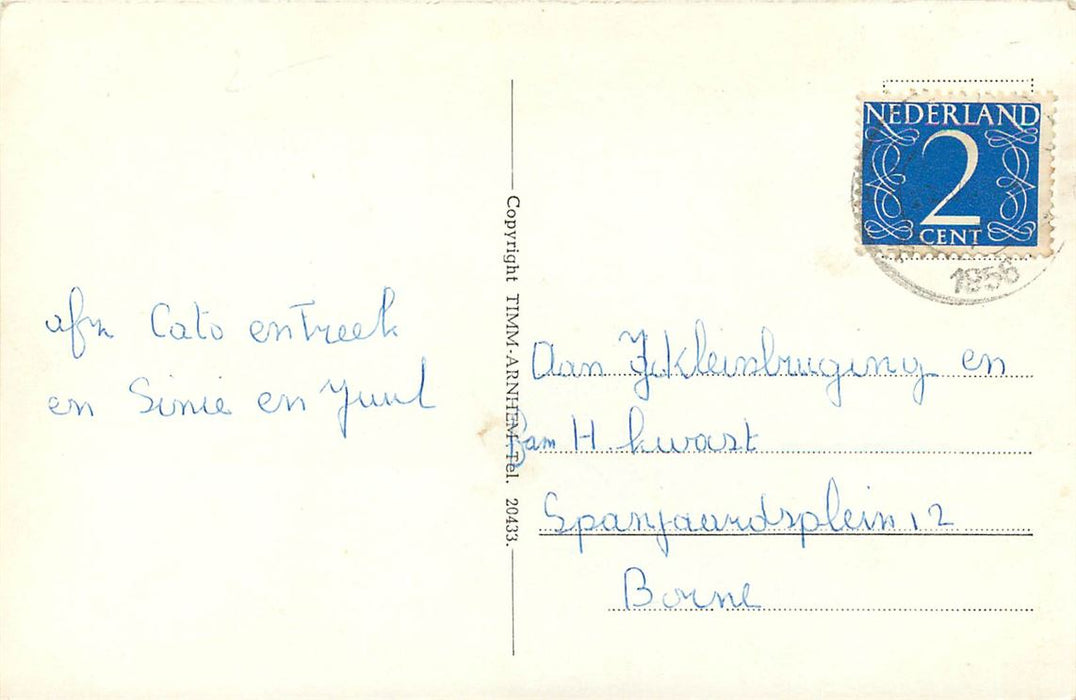 afz Cato en Treek
en Sinie en Juul
Copyright TIMM-ARNHEM-Tel. 20433.
NEDERLAND
2
CENT
1956
Aan Kleinbruging en
Fam H. Kwast
Spanjaardsplein 12
Borne